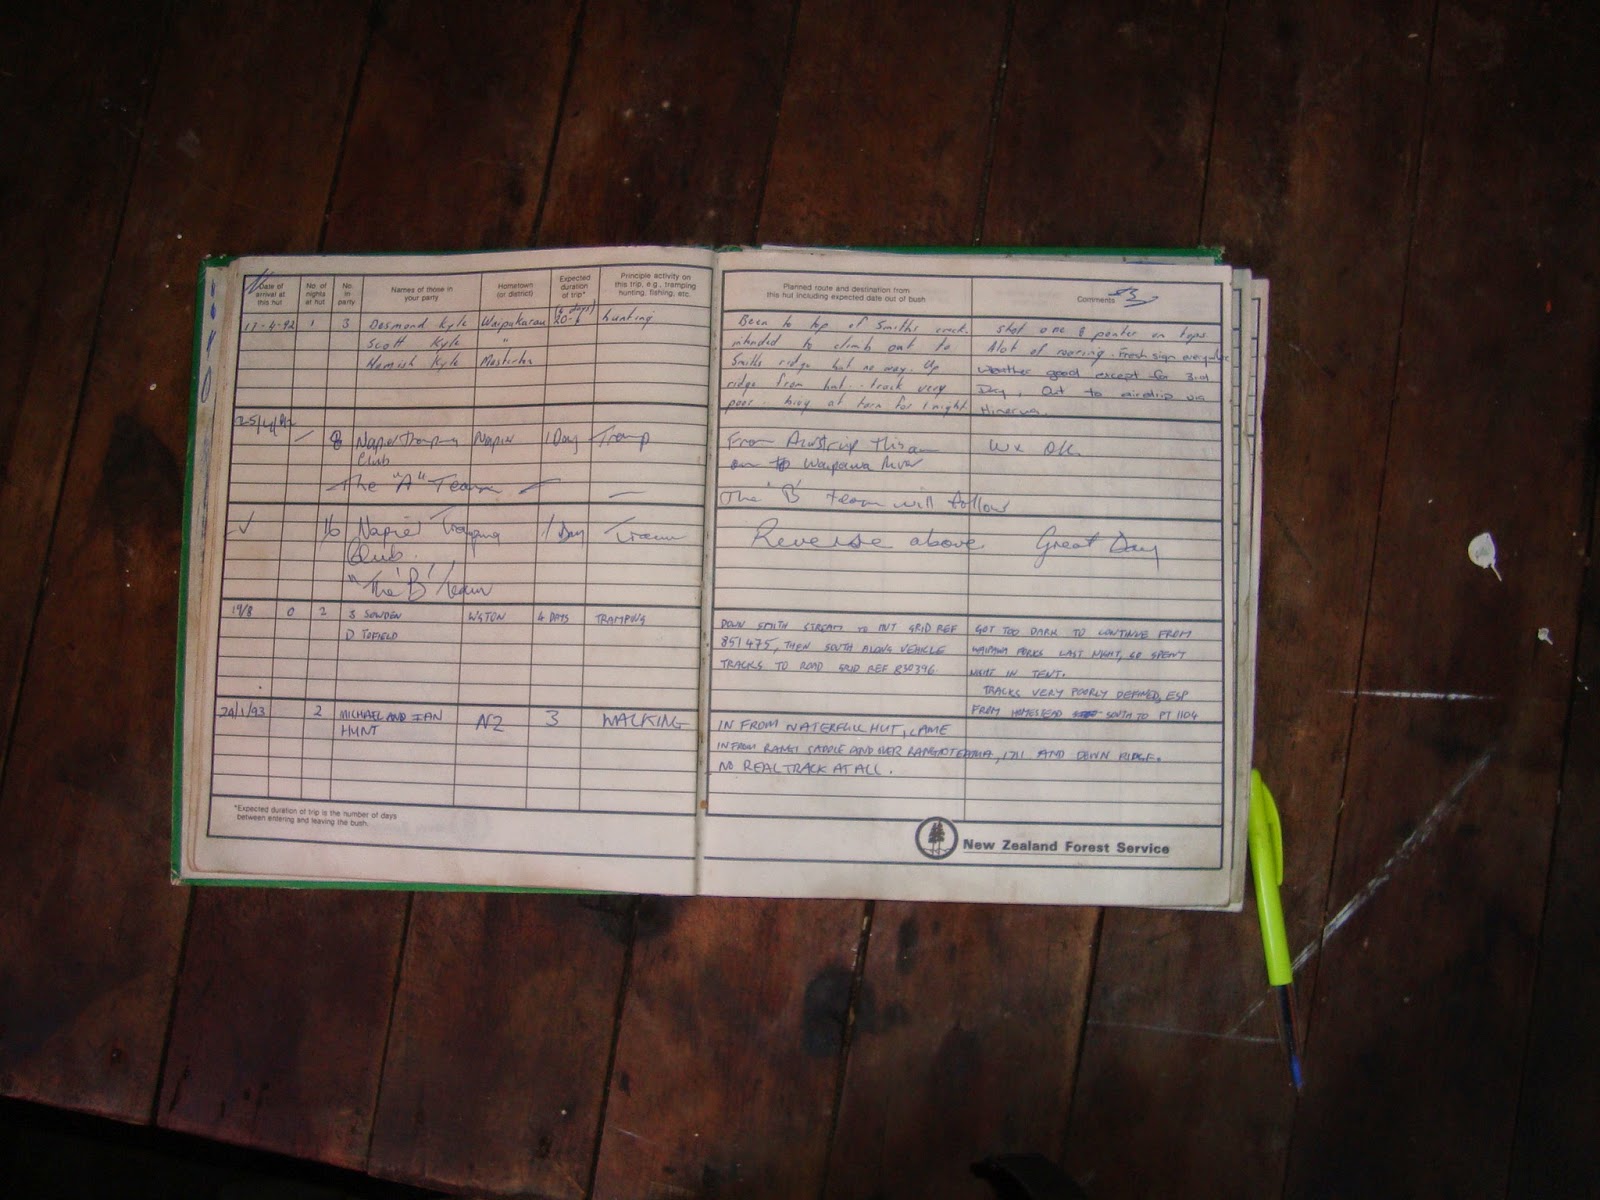 Date of arrival at this hut
No. of nights at hut
No. in party
Names of those in your party
Hometown (or district)
Expected duration of trip*
Principle activity on this trip, e.g., tramping hunting, fishing, etc.
Planned route and destination from this hut including expected date out of bush
Comments
17-4-92 1 3 Desmond Kyle Waipukurau (6 days) hunting
Scott Kyle "
Hamish Kyle
Been to top of Smiths creek.
intended to climb out to
Smiths ridge but no way. Up
ridge from hut. track very
poor. bivy at tarn for 1 night.
Shot one 8 pointer on tops
Alot of roaring. Fresh sign everywhere
Weather good except for 3rd
Day. Out to airstrip via
Minerva.
25/4/92 – 8 Napier Tramping Napier 1 Day Tramp
Club
The "A" Team
From Airstrip this am
on to Waipawa River
The 'B' team will follow
Wx OK.
16 Napier Tramping 1 Day Tramp
Club.
"The 'B' Team
Reverse above. Great Day
19/8 0 2 S SOWDEN WGTON 4 DAYS TRAMPING
D TOFIELD
DOWN SMITH STREAM TO HUT GRID REF
851475, THEN SOUTH ALONG VEHICLE
TRACKS TO ROAD GRID REF 830396
GOT TOO DARK TO CONTINUE FROM
WAIPAWA FORKS LAST NIGHT, SO SPENT
NIGHT IN TENT.
TRACKS VERY POORLY DEFINED, ESP
FROM HOMESTEAD SOUTH TO PT 1104
/1/93 2 MICHAEL AND IAN NZ 3 WALKING
HUNT
IN FROM WATERFALL HUT, CAME
IN FROM RANGI SADDLE AND OVER RANGIOTEATUA, 1711 AND DOWN RIDGE.
NO REAL TRACK AT ALL.
*Expected duration of trip is the number of days
between entering and leaving the bush.
New Zealand Forest Service